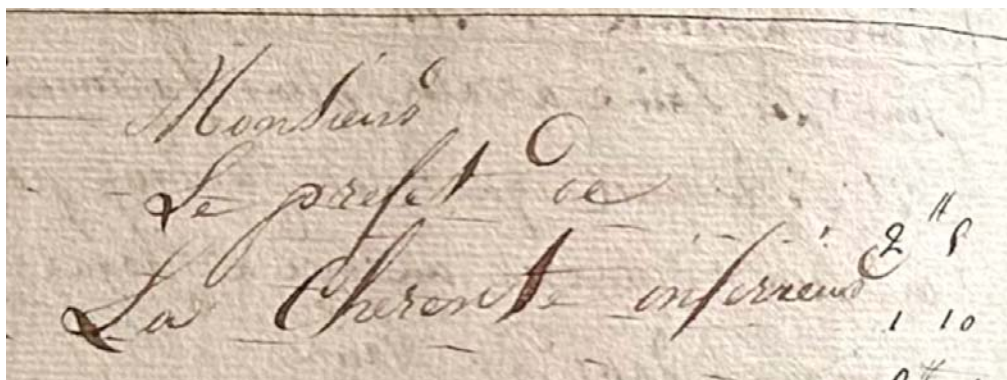 Monsieur
Le prefet de
La Cherente inferieur
2 ʰ s
1 10